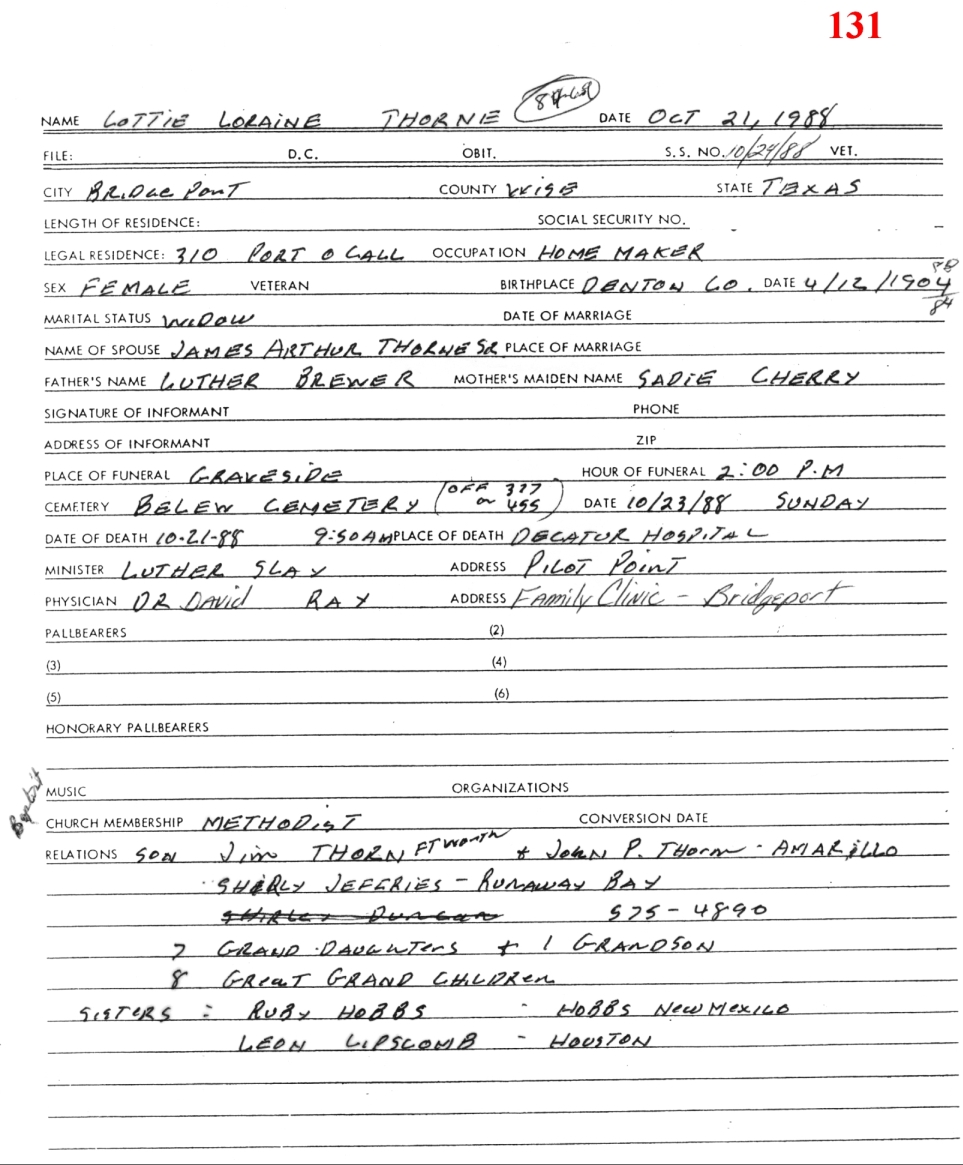 131
NAME LOTTIE LORAINE THORNE DATE OCT 21, 1988
FILE: D.C. OBIT. S.S. NO. 10/24/88 VET.
CITY BRIDGE PORT COUNTY WISE STATE TEXAS
LENGTH OF RESIDENCE: SOCIAL SECURITY NO. - -
LEGAL RESIDENCE: 310 PORT O CALL OCCUPATION HOME MAKER
SEX FEMALE VETERAN BIRTHPLACE DENTON CO. DATE 4/12/1904
84
MARITAL STATUS WIDOW DATE OF MARRIAGE
NAME OF SPOUSE JAMES ARTHUR THORNE SR PLACE OF MARRIAGE
FATHER'S NAME LUTHER BREWER MOTHER'S MAIDEN NAME SADIE CHERRY
SIGNATURE OF INFORMANT PHONE
ADDRESS OF INFORMANT ZIP
PLACE OF FUNERAL GRAVESIDE HOUR OF FUNERAL 2:00 P.M
CEMETERY BELEW CEMETERY (OFF 377 or 455) DATE 10/23/88 SUNDAY
DATE OF DEATH 10-21-88 9:50 AM PLACE OF DEATH DECATUR HOSPITAL
MINISTER LUTHER SLAY ADDRESS PILOT POINT
PHYSICIAN DR DAVID RAY ADDRESS Family Clinic - Bridgeport
PALLBEARERS (2)
(3) (4)
(5) (6)
HONORARY PALLBEARERS
MUSIC ORGANIZATIONS
Baptist
CHURCH MEMBERSHIP METHODIST CONVERSION DATE
RELATIONS SON Jim THORN FT WORTH + JOHN P. THORN - AMARILLO
SHIRLY JEFERIES - RUNAWAY BAY
SHIRLEY DUNCAN 575-4890
7 GRAND DAUGHTERS + 1 GRANDSON
8 GREAT GRAND CHILDREN
SISTERS : RUBY HOBBS - HOBBS NEW MEXICO
LEON LIPSCOMB - HOUSTON